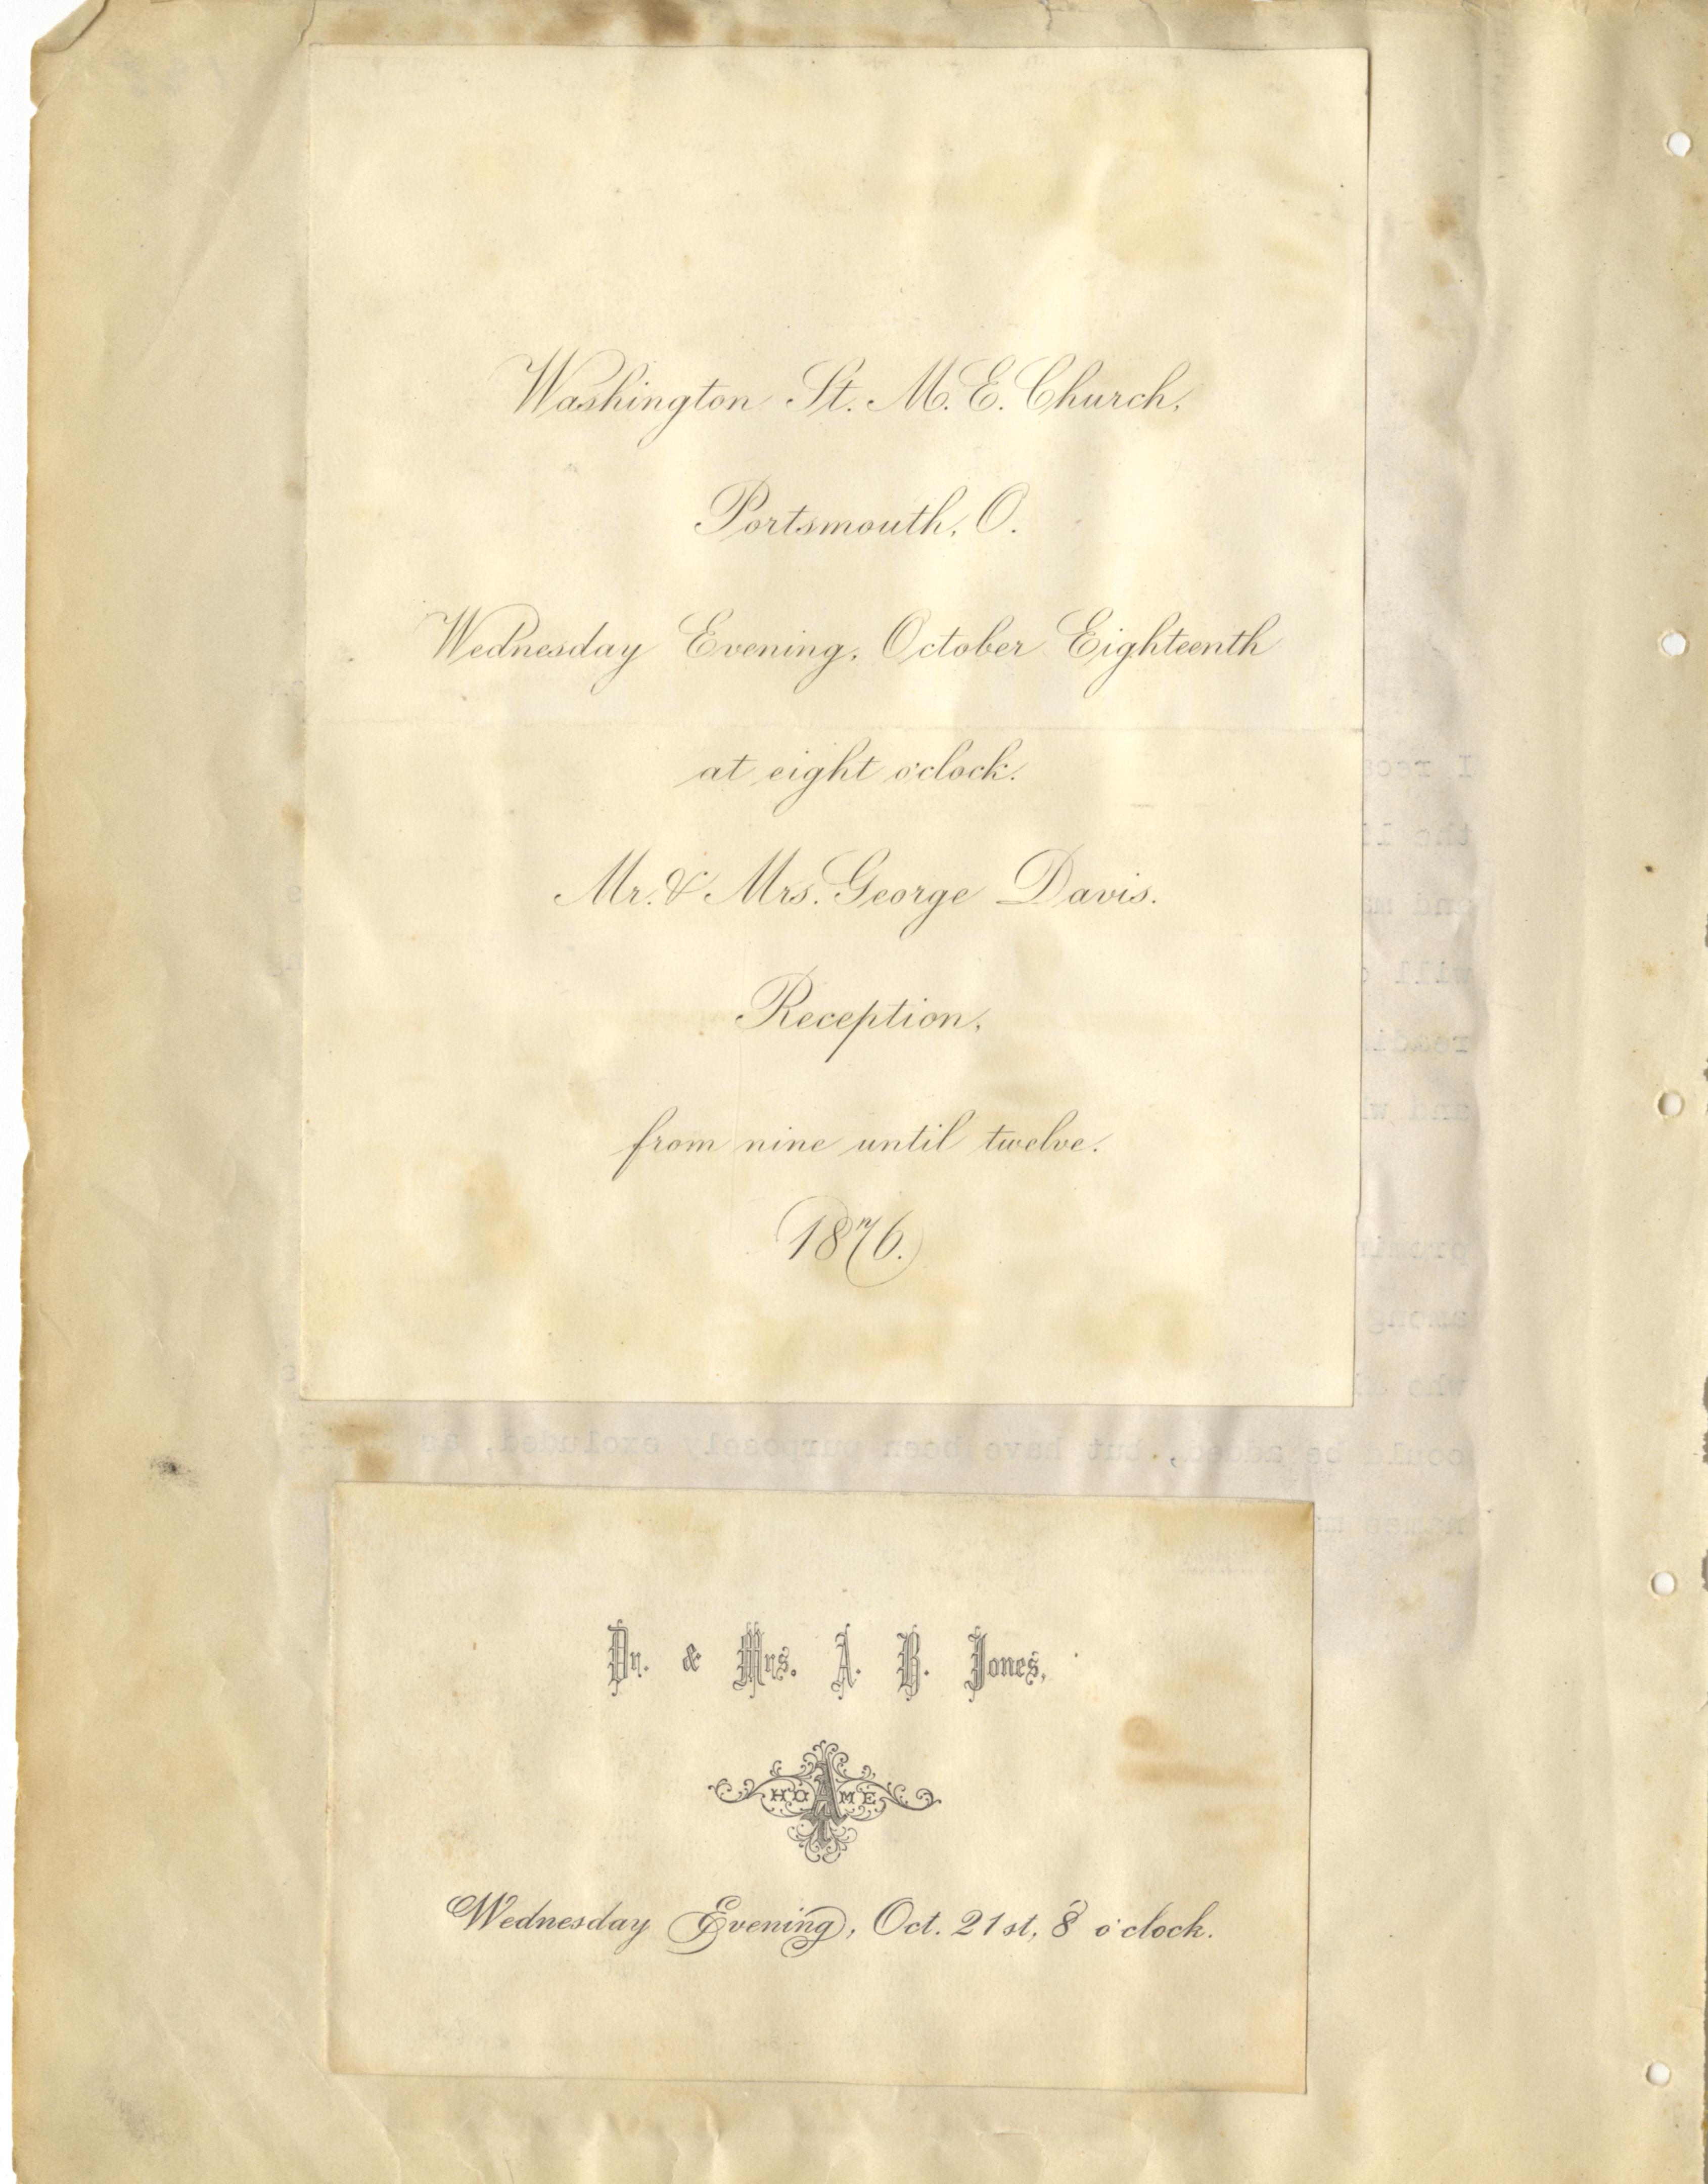 Washington St. M. E. Church,
Portsmouth, O.
Wednesday Evening, October Eighteenth
at eight o'clock.
Mr. & Mrs. George Davis.
Reception,
from nine until twelve.
1876.
could be added, but have been purposely excluded, as
Dr. & Mrs. A. B. Jones,
AT HOME
Wednesday Evening, Oct. 21st, 8 o'clock.